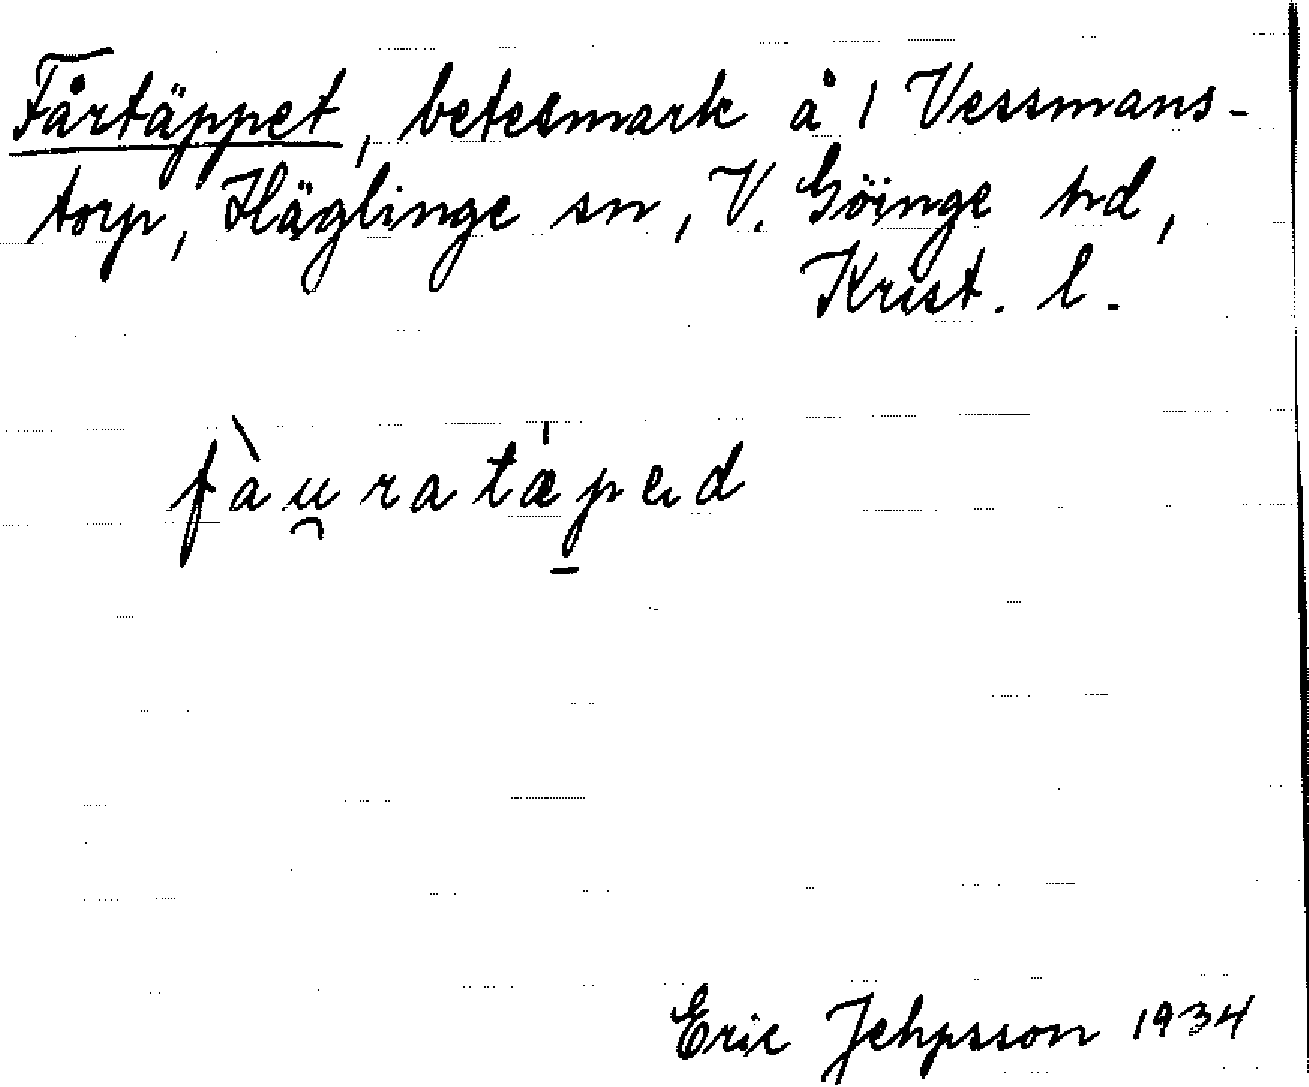 Fårtäppet, betesmark å 1 Vessmans-
torp, Häglinge sn, V. Göinge hd,
Krist. l.
fàu̯ratap̱ed
Eric Jehpsson 1934